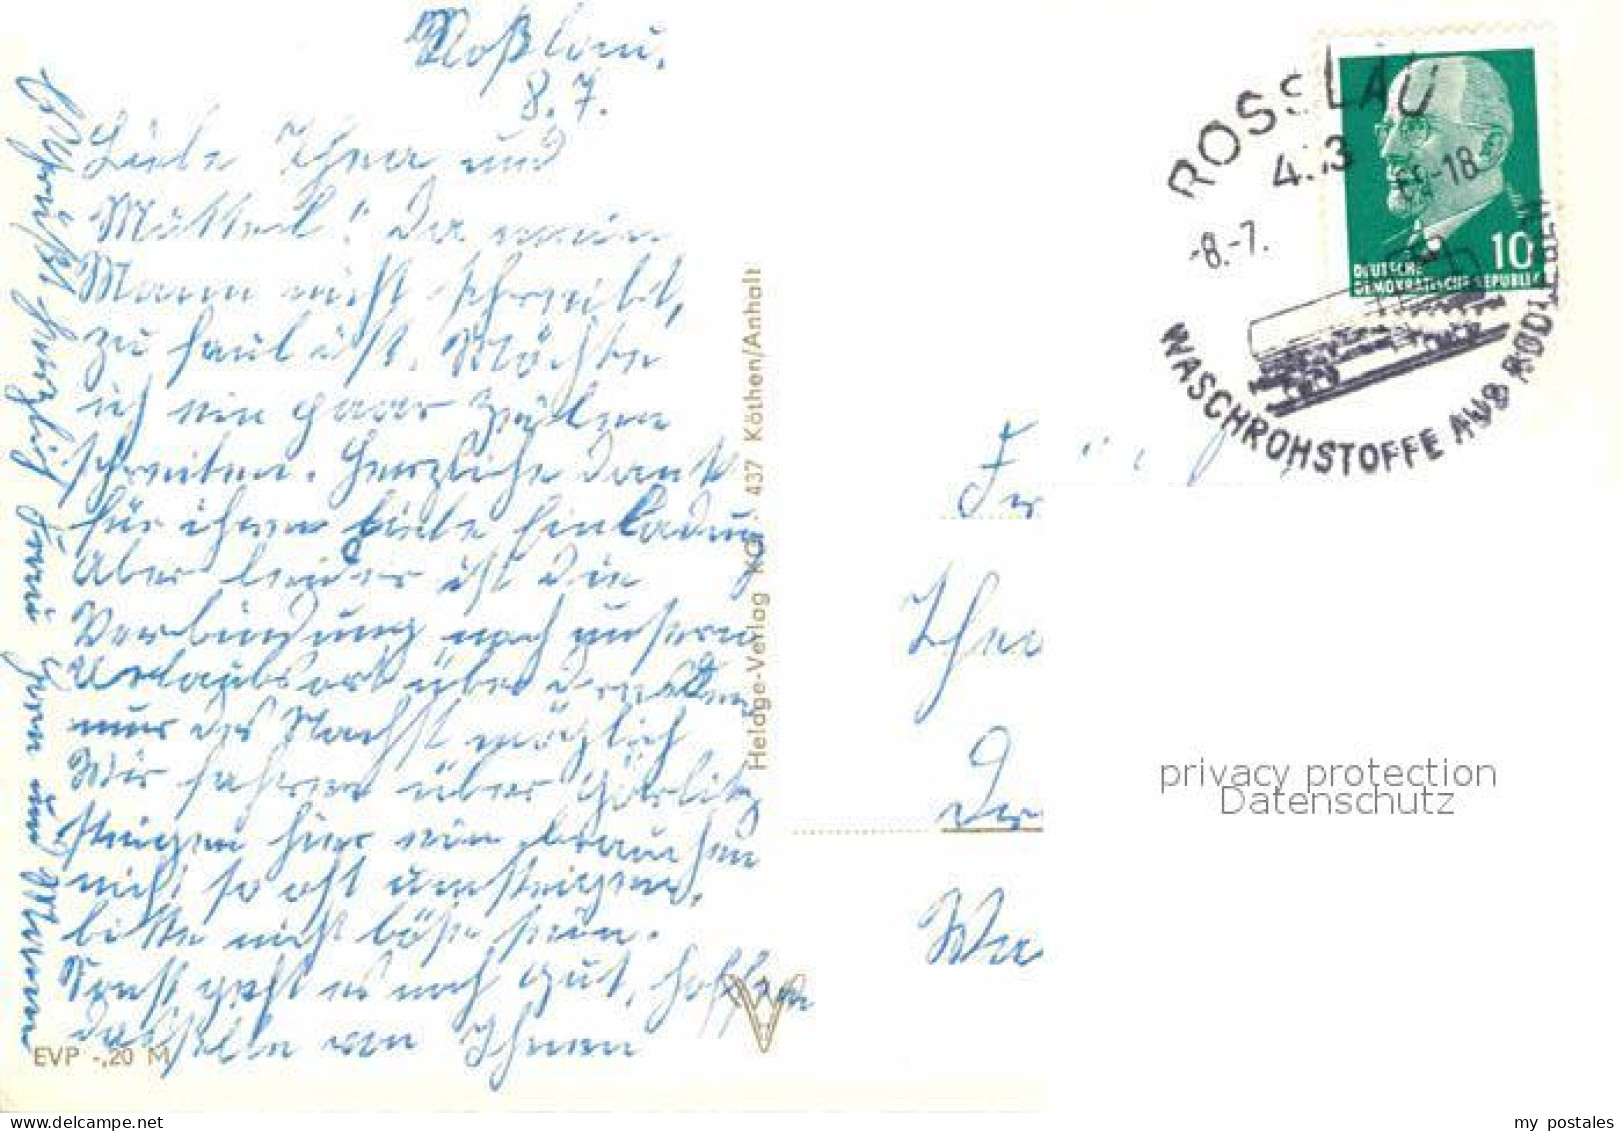 Roßlau,
8.7.
Liebe Thea und
Mutter! Da mein
Mann nicht schreibt,
zu faul ist. Möchte
ich ein paar Zeilen
schreiben. Herzliche Dank
für ihren liebe Einladung
Aber leider ist die
Verbindung nach unserm
Urlaubsort über Dresden
nur des Nachst möglich
Wir fahren über Görlitz
steigen hier ein, brauchen
nicht so oft umsteigen,
bitte nicht böse sein.
Sonst geht es noch gut, hoffen
dasselbe von Ihnen
Es grüßt herzlich Frau und Mann
EVP -,20 M
Heldge-Verlag KG. 437 Köthen/Anhalt
ROSSLAU
-8.-7.
-18
WASCHROHSTOFFE AUS RODLEBEN
10
DEUTSCHE
DEMOKRATISCHE REPUBLIK
privacy protection
Datenschutz
my postales